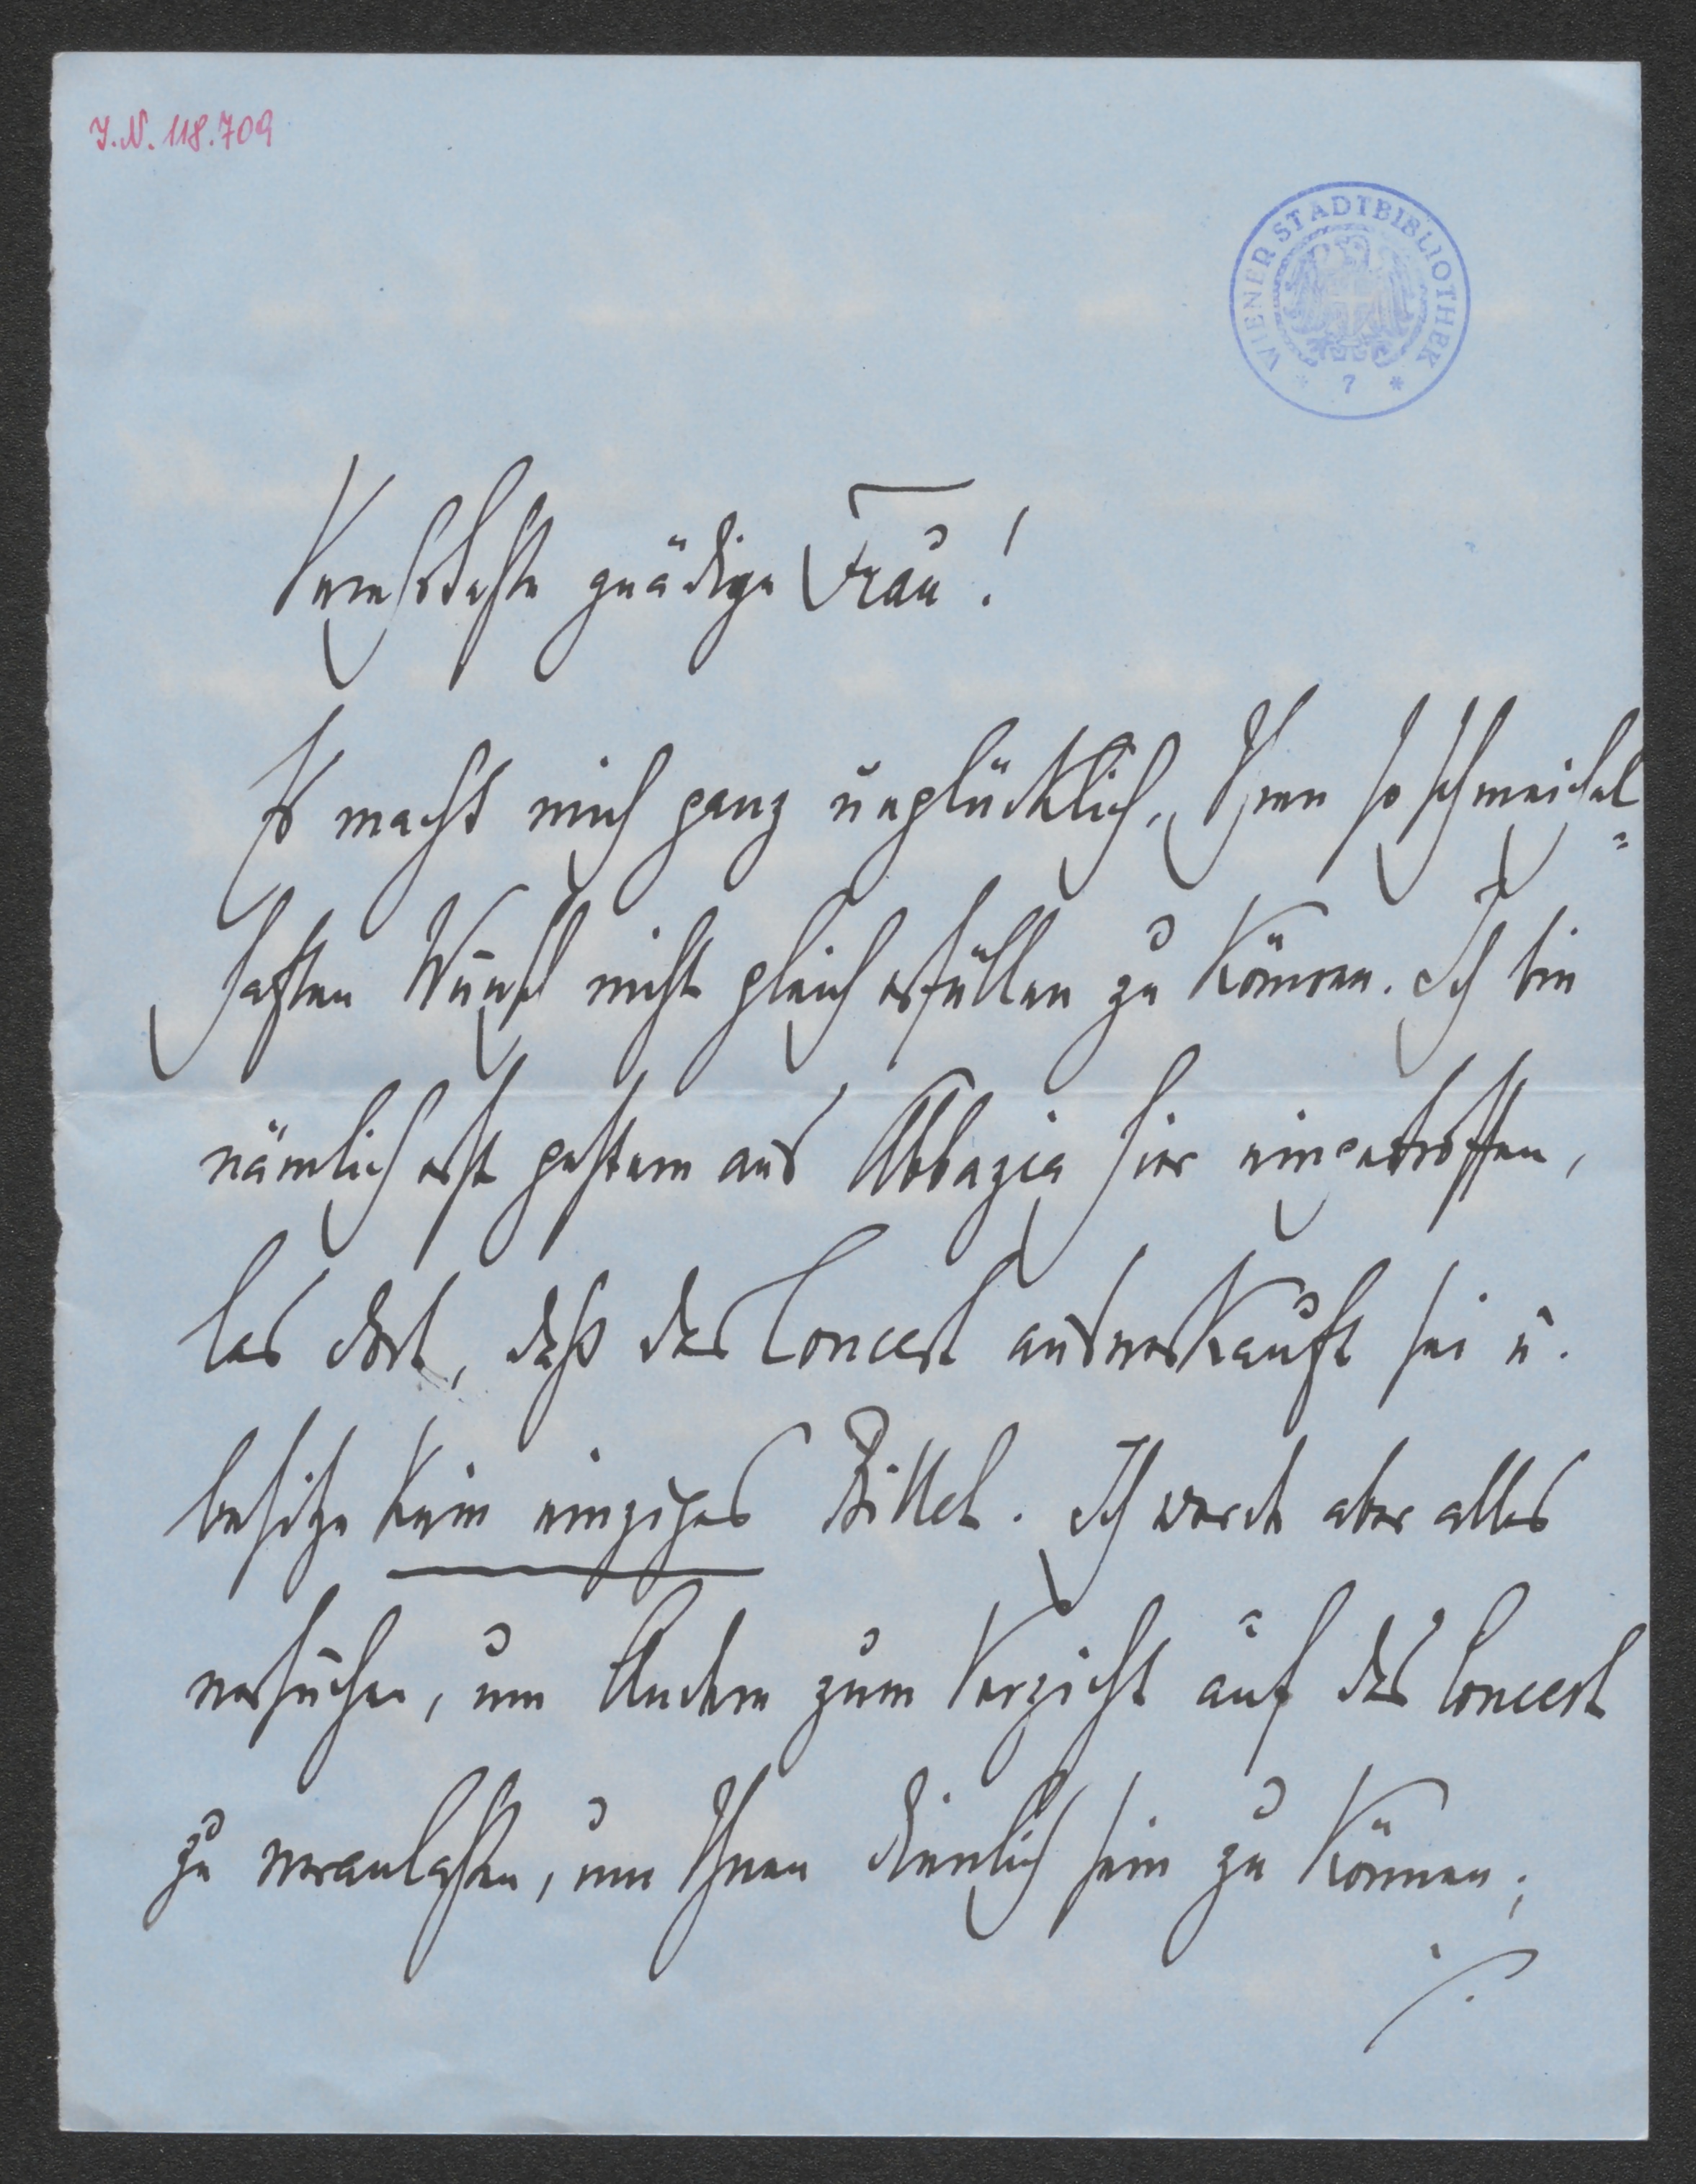 J.N. 118.709
WIENER STADTBIBLIOTHEK
* 7 *
Verehrteste gnädige Frau!
Es macht mich ganz unglücklich, Ihren so schmeichel=
haften Wunsch nicht gleich erfüllen zu können. Ich bin
nämlich erst gestern aus Abbazia hier eingetroffen,
las dort, daß das Concert ausverkauft sei u.
besitze kein einziges Billet. Ich werde aber alles
versuchen, um Andere zum Verzicht auf das Concert
zu veranlassen, um Ihnen dienlich sein zu können;
./.